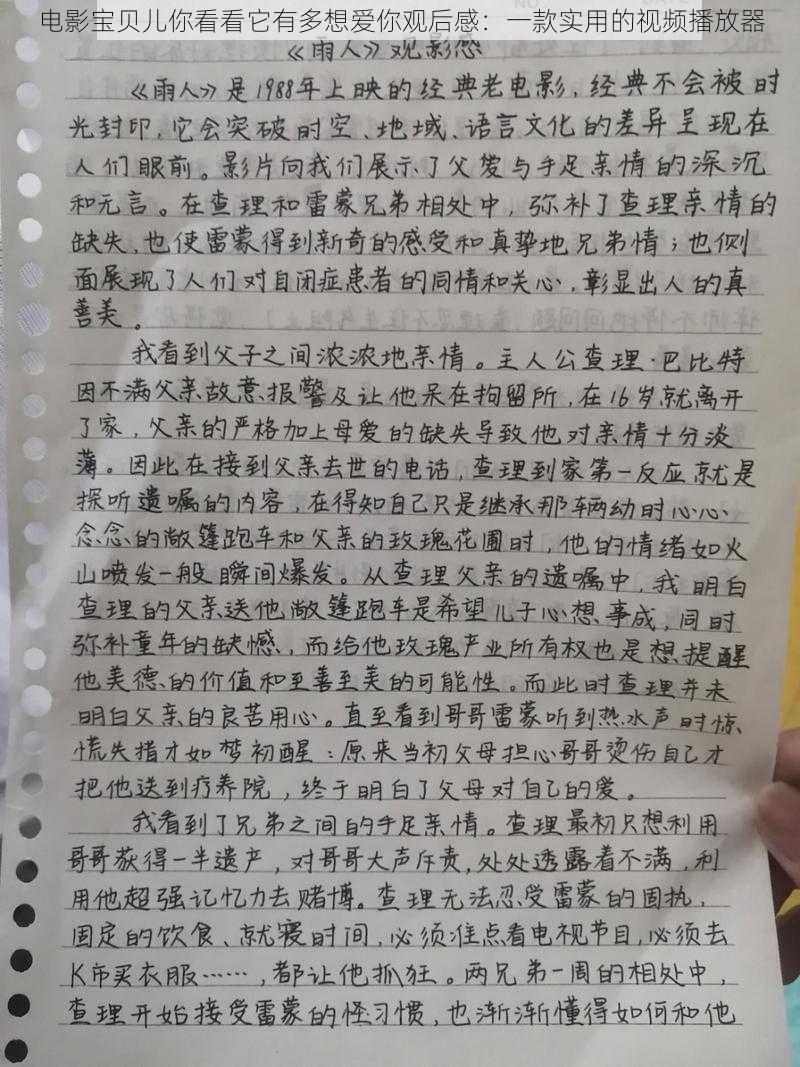 电影宝贝儿你看看它有多想爱你观后感：一款实用的视频播放器
《雨人》观影感
《雨人》是1988年上映的经典老电影，经典不会被时
光封印，它会突破时空、地域、语言文化的差异呈现在
人们眼前。影片向我们展示了父爱与手足亲情的深沉
和无言。在查理和雷蒙兄弟相处中，弥补了查理亲情的
缺失，也使雷蒙得到新奇的感受和真挚地兄弟情；也侧
面展现了人们对自闭症患者的同情和关心，彰显出人的真
善美。
我看到父子之间浓浓地亲情。主人公查理·巴比特
因不满父亲故意报警及让他呆在拘留所，在16岁就离开
了家，父亲的严格加上母爱的缺失导致他对亲情十分淡
薄。因此在接到父亲去世的电话，查理到家第一反应就是
探听遗嘱的内容，在得知自己只是继承那辆幼时心心
念念的敞篷跑车和父亲的玫瑰花圃时，他的情绪如火
山喷发一般瞬间爆发。从查理父亲的遗嘱中，我明白
查理的父亲送他敞篷跑车是希望儿子心想事成，同时
弥补童年的缺憾，而给他玫瑰产业所有权也是想提醒
他美德的价值和至善至美的可能性。而此时查理并未
明白父亲的良苦用心。直至看到哥哥雷蒙听到热水声时惊
慌失措才如梦初醒：原来当初父母担心哥哥烫伤自己才
把他送到疗养院，终于明白了父母对自己的爱。
我看到了兄弟之间的手足亲情。查理最初只想利用
哥哥获得一半遗产，对哥哥大声斥责，处处透露着不满，利
用他超强记忆力去赌博。查理无法忍受雷蒙的固执，
固定的饮食、就寝时间，必须准点看电视节目，必须去
K市买衣服……，都让他抓狂。两兄弟一周的相处中，
查理开始接受雷蒙的怪习惯，也渐渐懂得如何和他